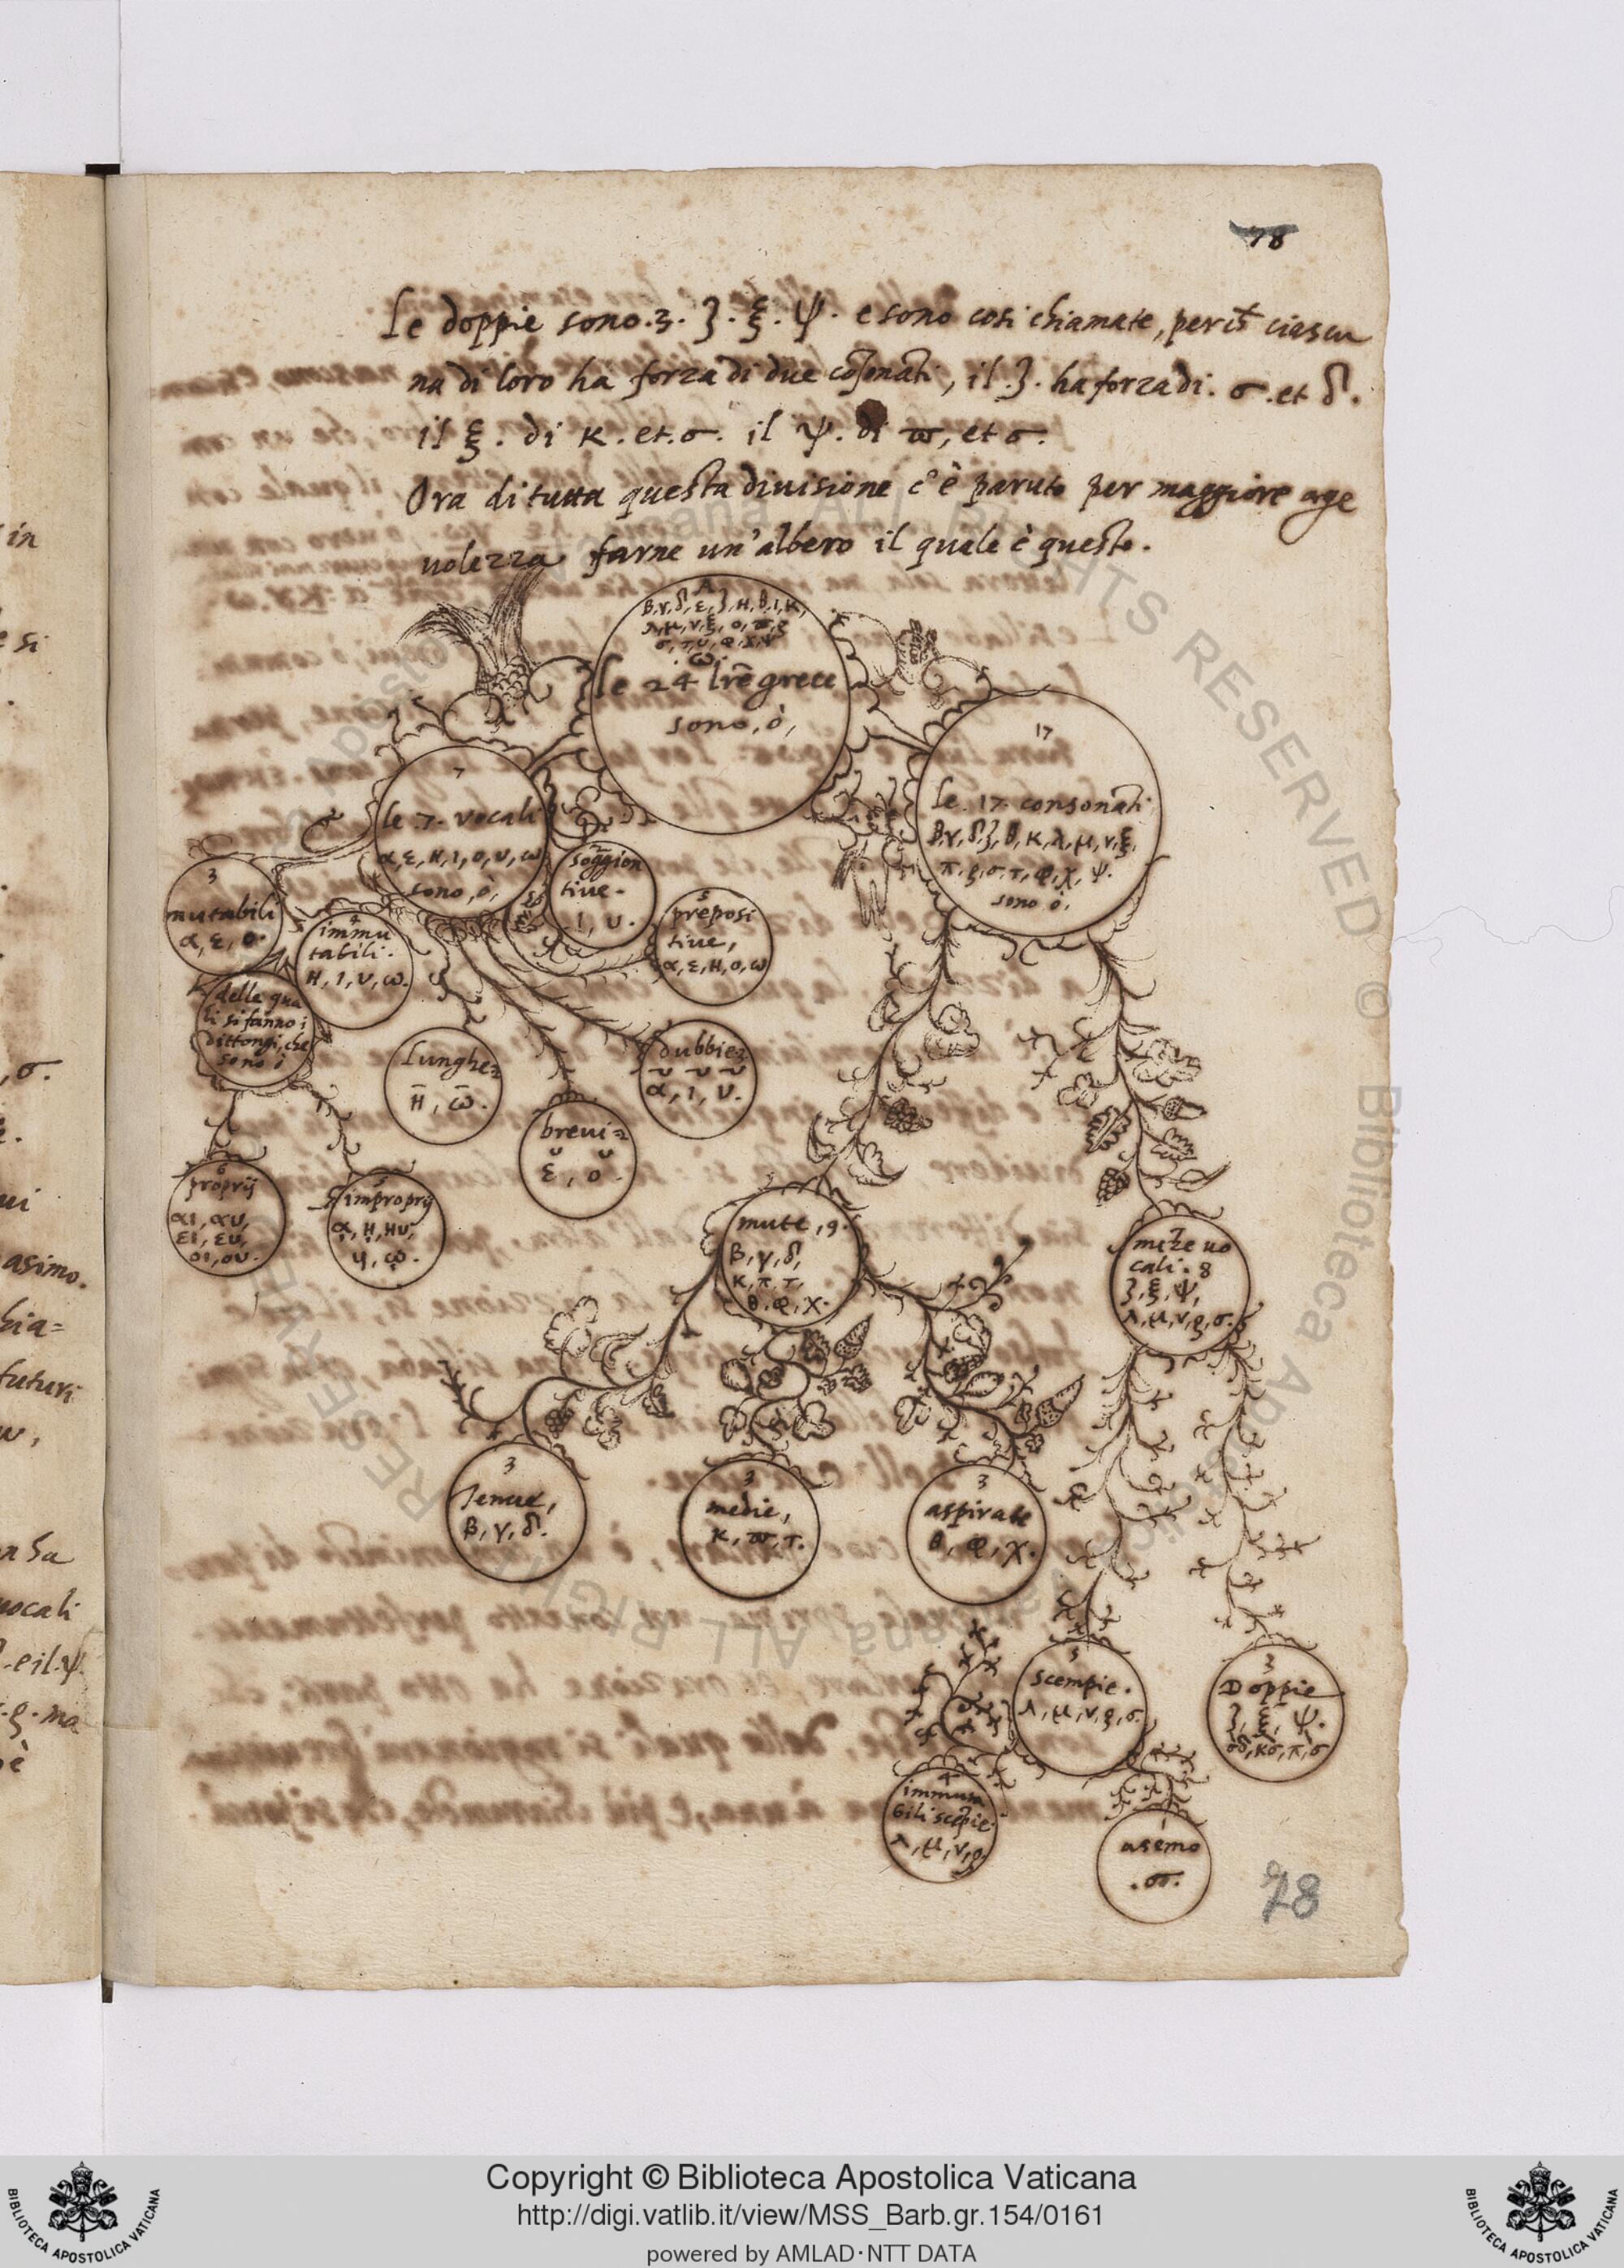 78
Le doppie sono .3. ȝ. ξ. ψ. e sono cosi chiamate, ciascu
na di loro ha forza di due cōsonāti, il .ȝ. ha forza di. σ. et δ.
il ξ. di κ. et. σ. il ψ. di ϖ, et σ.
Ora di tutta questa divisione c'è paruto per maggiore age
volezza farne un'albero il quale è questo.
A
β, γ, δ, ε, ȝ, η, θ, ι, κ,
λ, μ, ν, ξ, ο, ϖ, ρ
σ, τ, υ, φ, χ, ψ
.ω.
le 24 lr̄e grece
sono, ò,
7
le .7. vocali
α, ε, η, ι, ο, υ, ω
sono, ò,
17
le .17. consonāti
β, γ, δ, ȝ, θ, κ, λ, μ, ν, ξ,
π, ρ, σ, τ, φ, χ, ψ.
sono ò,
3
mutabili
α, ε, ο.
4
immu
tabili.
η, ι, υ, ω.
2
soggion
tive.
ι, υ.
5
preposi
tive,
α, ε, η, ο, ω
delle qua
li si fanno i
dittongi, che
sono i
Lunghe 2
η̄, ω̄.
brevi 2
ε̆, ο̆.
dubbie 3
α, ι, υ.
6
proprij
αι, αυ,
ει, ευ,
οι, ου.
improprij
ᾳ, ῃ, ηυ,
ῳ.
mute, 9.
β, γ, δ,
κ, π, τ,
θ, φ, χ.
meze vo
cali. 8
ȝ, ξ, ψ,
λ, μ, ν, ρ, σ.
3
Tenue,
β, γ, δ.
3
medie,
κ, ϖ, τ.
3
aspirate
θ, φ, χ.
5
scempie.
λ, μ, ν, ρ, σ.
3
Doppie
ȝ, ξ, ψ.
σδ, κσ, π, σ
4
immuta
bili scēpie.
λ, μ, ν, ρ.
1
asemo
.σ.
78
in
e si
, σ.
asimo.
futuri
vocali
. e il . ψ.
. ρ . ma
è
Copyright © Biblioteca Apostolica Vaticana
http://digi.vatlib.it/view/MSS_Barb.gr.154/0161
powered by AMLAD·NTT DATA
BIBLIOTECA APOSTOLICA VATICANA
BIBLIOTECA APOSTOLICA VATICANA
© Biblioteca Apostolica Vaticana ALL RIGHTS RESERVED